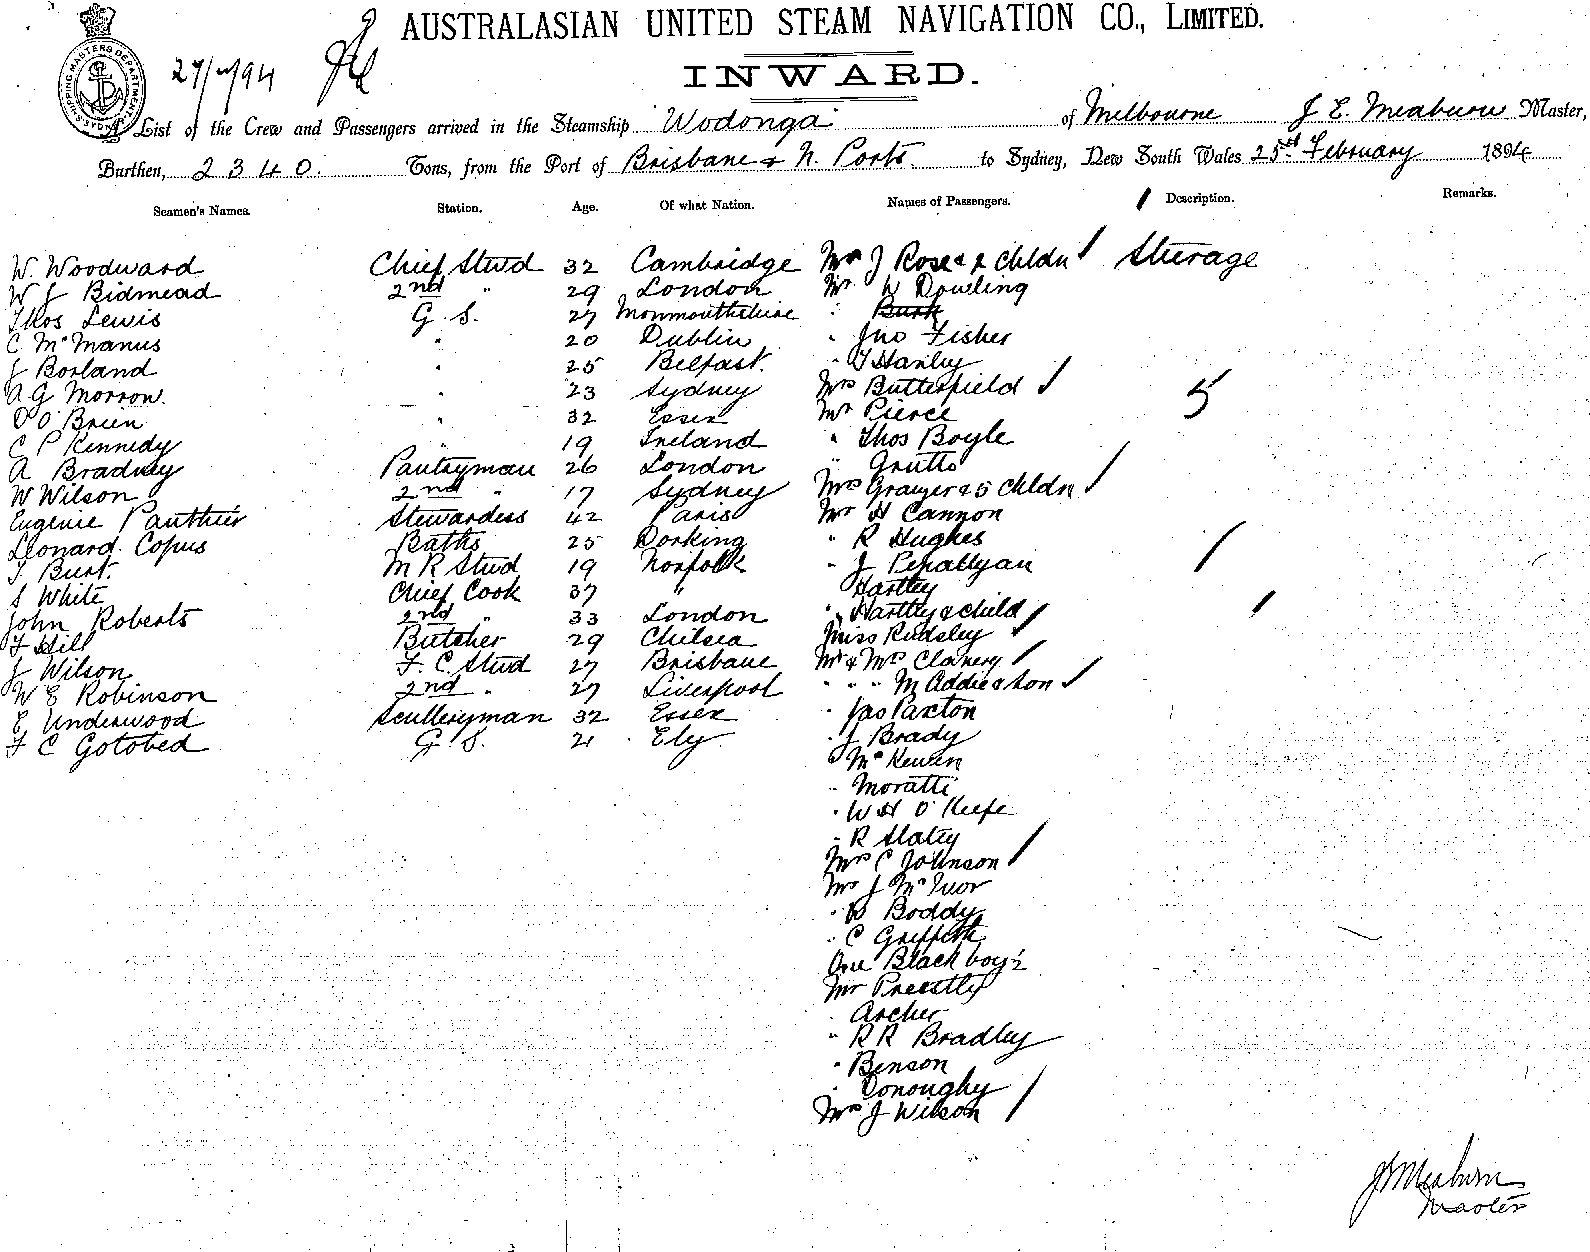 AUSTRALASIAN UNITED STEAM NAVIGATION CO., LIMITED.
SHIPPING MASTERS DEPARTMENT SYDNEY
INWARD.
A List of the Crew and Passengers arrived in the Steamship Wodonga of Melbourne J E. Meaburn Master,
Burthen, 2340. Tons, from the Port of Brisbane & N. Ports. to Sydney, New South Wales 25 February 1894
Seamen's Names. Station. Age. Of what Nation. Names of Passengers. Description. Remarks.
W. Woodward Chief Stwd 32 Cambridge Mrs J Rose & 2 Chldn Steerage
W J Bidmead 2nd " 29 London Mr W Dowling
Thos Lewis G. S. 27 Monmouthshire " Burk
C McManus " 20 Dublin " Jno Fisher
J Borland " 25 Belfast. " T Hanley
A G Morrow. " 23 Sydney Mrs Butterfield
O O'Brien " 32 Essex Mr Pierce 5
C P Kennedy " 19 Ireland " Thos Boyle
A Bradney Pantryman 26 London " Grutts
W Wilson 2nd " 17 Sydney Mrs Granger & 5 Chldn
Eugenie Panthier Stewardess 42 Paris Mr H Cannon
Leonard Copus Baths 25 Dorking " R Hughes
T Burt. M R Stwd 19 Norfolk " J
S White Chief Cook 37 " Hartley
John Roberts 2nd " 33 London " Hartley & child
F Hill Butcher 29 Chelsea Miss Rudsley
J Wilson F. C. Stwd 27 Brisbane Mr & Mrs Clancy
W E Robinson 2nd " 27 Liverpool " " " McAddie & Son
E Underwood Sculleryman 32 Essex " Jas Paxton
F C Gotobed G. S. 21 Ely " J Brady
" McKewen
" Moratti
" W H O'Keefe
" R Slatey
Mrs C Johnson
Mr J McIvor
" W Boddy
" C Griffith
One Black boy ½
Mr Preestly
" Archer
" R R Bradley
" Benson
" Donoughy
Mrs J Wilson
J E Meaburn
Master